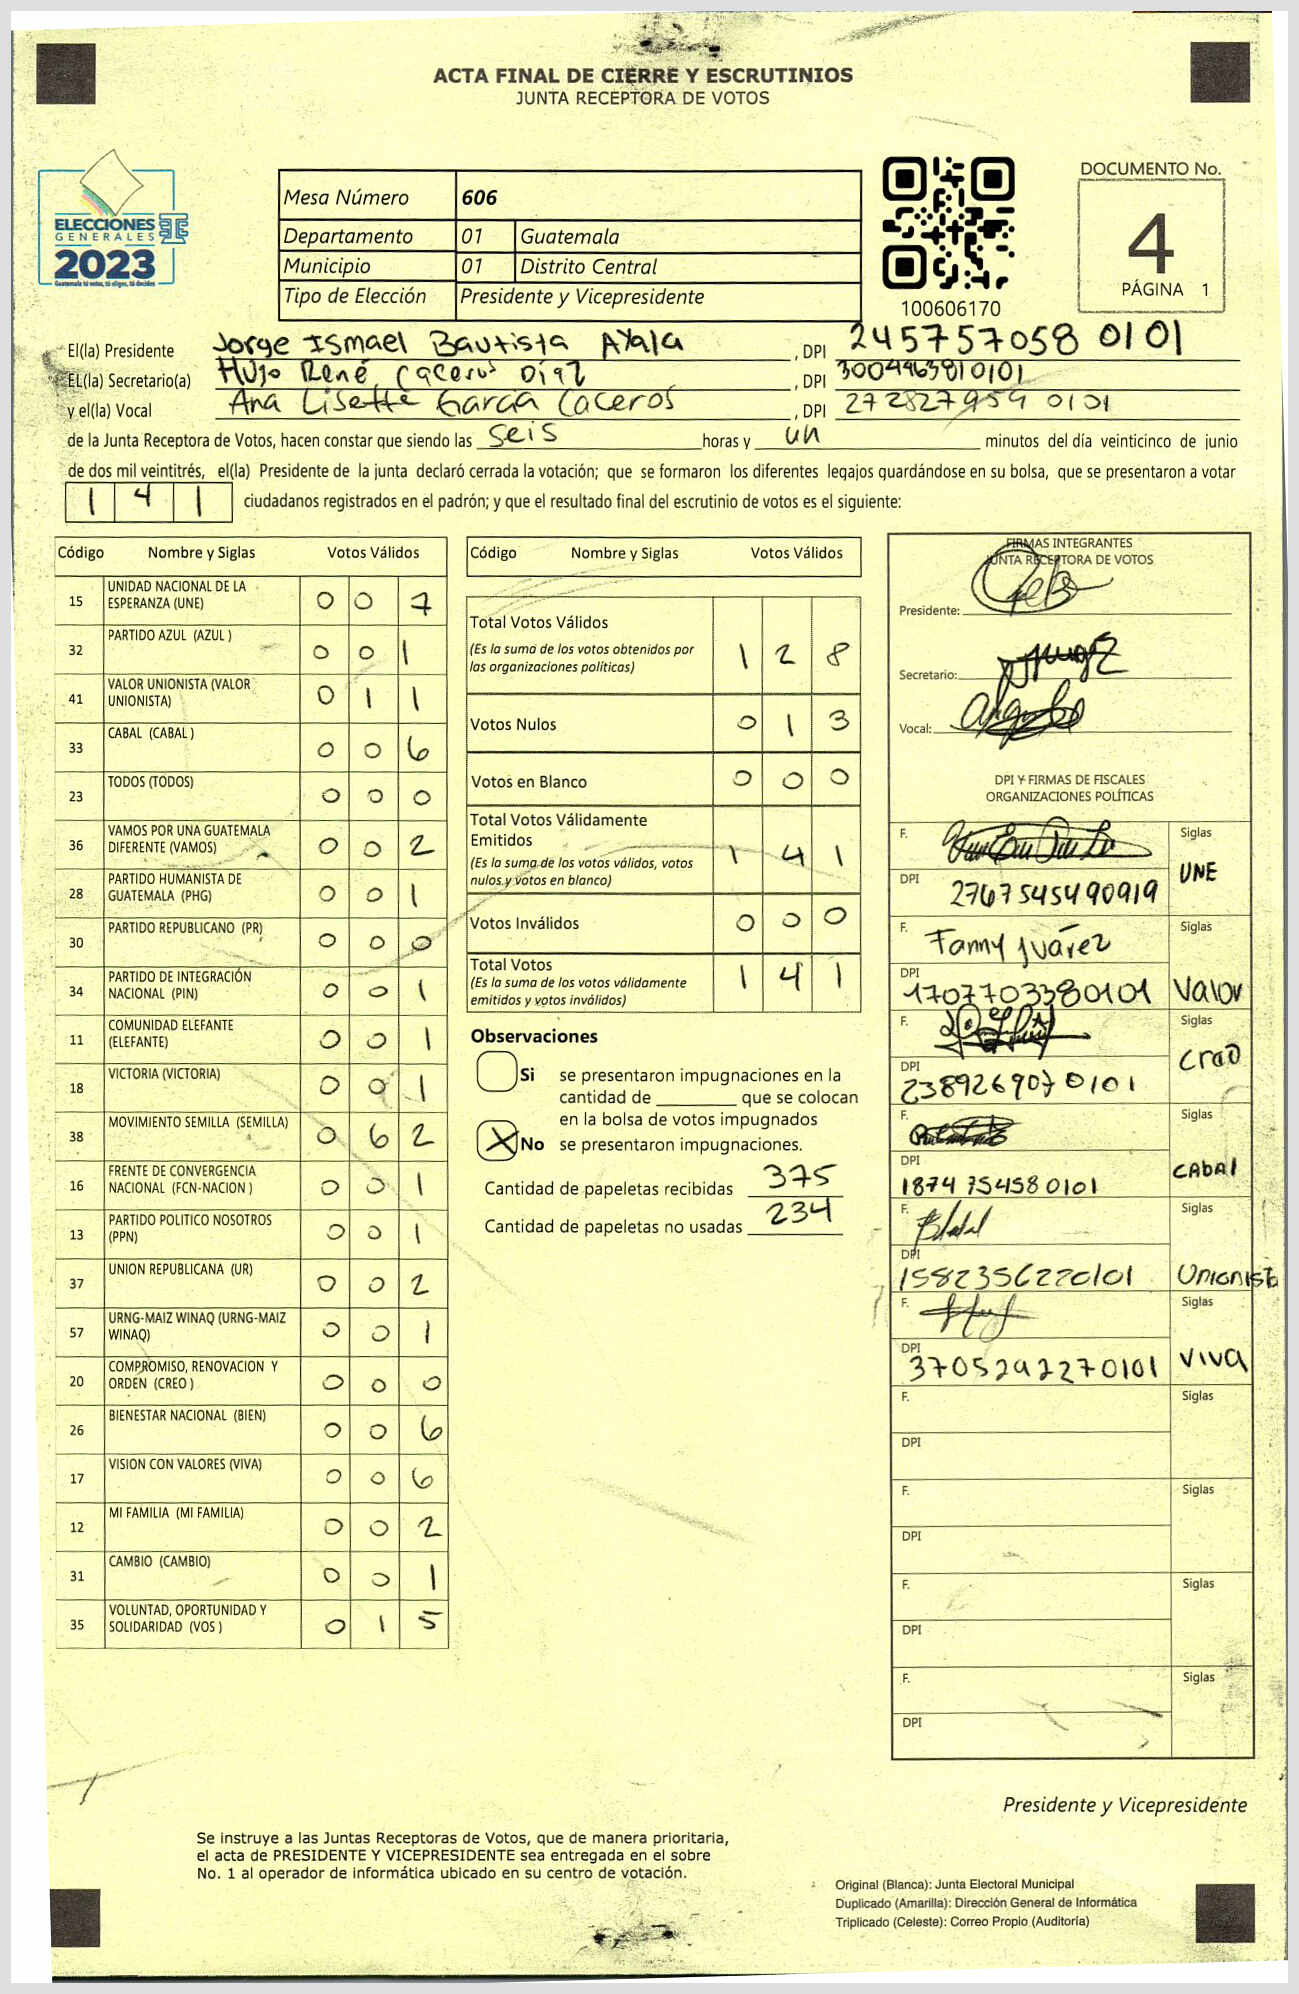 ACTA FINAL DE CIERRE Y ESCRUTINIOS
JUNTA RECEPTORA DE VOTOS
ELECCIONES
GENERALES
2023
Guatemala tú votas, tú eliges, tú decides
Mesa Número 606
Departamento 01 Guatemala
Municipio 01 Distrito Central
Tipo de Elección Presidente y Vicepresidente
100606170
DOCUMENTO No.
4
PÁGINA 1
El(la) Presidente Jorge Ismael Bautista Ayala, DPI 245757058 0101
EL(la) Secretario(a) Hugo René Caceros Díaz, DPI 3004963810101
y el(la) Vocal Ana Lisette García Caceros, DPI 272827959 0101
de la Junta Receptora de Votos, hacen constar que siendo las seis horas y un minutos del día veinticinco de junio
de dos mil veintitrés, el(la) Presidente de la junta declaró cerrada la votación; que se formaron los diferentes legajos guardándose en su bolsa, que se presentaron a votar
1 4 1 ciudadanos registrados en el padrón; y que el resultado final del escrutinio de votos es el siguiente:
Código Nombre y Siglas Votos Válidos
15 UNIDAD NACIONAL DE LA ESPERANZA (UNE) 0 0 7
32 PARTIDO AZUL (AZUL ) 0 0 1
41 VALOR UNIONISTA (VALOR UNIONISTA) 0 1 1
33 CABAL (CABAL ) 0 0 6
23 TODOS (TODOS) 0 0 0
36 VAMOS POR UNA GUATEMALA DIFERENTE (VAMOS) 0 0 2
28 PARTIDO HUMANISTA DE GUATEMALA (PHG) 0 0 1
30 PARTIDO REPUBLICANO (PR) 0 0 0
34 PARTIDO DE INTEGRACIÓN NACIONAL (PIN) 0 0 1
11 COMUNIDAD ELEFANTE (ELEFANTE) 0 0 1
18 VICTORIA (VICTORIA) 0 0 1
38 MOVIMIENTO SEMILLA (SEMILLA) 0 6 2
16 FRENTE DE CONVERGENCIA NACIONAL (FCN-NACION ) 0 0 1
13 PARTIDO POLITICO NOSOTROS (PPN) 0 0 1
37 UNION REPUBLICANA (UR) 0 0 2
57 URNG-MAIZ WINAQ (URNG-MAIZ WINAQ) 0 0 1
20 COMPROMISO, RENOVACION Y ORDEN (CREO ) 0 0 0
26 BIENESTAR NACIONAL (BIEN) 0 0 6
17 VISION CON VALORES (VIVA) 0 0 6
12 MI FAMILIA (MI FAMILIA) 0 0 2
31 CAMBIO (CAMBIO) 0 0 1
35 VOLUNTAD, OPORTUNIDAD Y SOLIDARIDAD (VOS ) 0 1 5
Código Nombre y Siglas Votos Válidos
Total Votos Válidos 1 2 8
(Es la suma de los votos obtenidos por
las organizaciones políticas)
Votos Nulos 0 1 3
Votos en Blanco 0 0 0
Total Votos Válidamente
Emitidos 1 4 1
(Es la suma de los votos válidos, votos
nulos y votos en blanco)
Votos Inválidos 0 0 0
Total Votos 1 4 1
(Es la suma de los votos válidamente
emitidos y votos inválidos)
Observaciones
Si se presentaron impugnaciones en la
cantidad de ________ que se colocan
en la bolsa de votos impugnados
X No se presentaron impugnaciones.
Cantidad de papeletas recibidas 375
Cantidad de papeletas no usadas 234
FIRMAS INTEGRANTES
JUNTA RECEPTORA DE VOTOS
Presidente:
Secretario:
Vocal:
DPI Y FIRMAS DE FISCALES
ORGANIZACIONES POLÍTICAS
F. Siglas
DPI 2767545490919 UNE
F. Fanny Juárez Siglas
DPI 1707703380101 Valor
F. Siglas
DPI 2389269070101 Creo
F. Siglas
DPI 1874754580101 CABAl
F. Siglas
DPI 1582356220101 Unionista
F. Siglas
DPI 3705292270101 VIVA
F. Siglas
DPI
F. Siglas
DPI
F. Siglas
DPI
F. Siglas
DPI
Presidente y Vicepresidente
Se instruye a las Juntas Receptoras de Votos, que de manera prioritaria,
el acta de PRESIDENTE Y VICEPRESIDENTE sea entregada en el sobre
No. 1 al operador de informática ubicado en su centro de votación.
Original (Blanca): Junta Electoral Municipal
Duplicado (Amarilla): Dirección General de Informática
Triplicado (Celeste): Correo Propio (Auditoría)